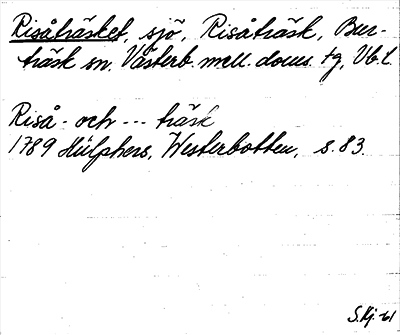 Risåträsket, sjö, Risåträsk, Bur-
träsk sn. Västerb. mell. doms. tg, Vb. l.
Riså - och --- träsk
1789 Hülphers, Westerbotten, s. 83.
S.Hj. -61